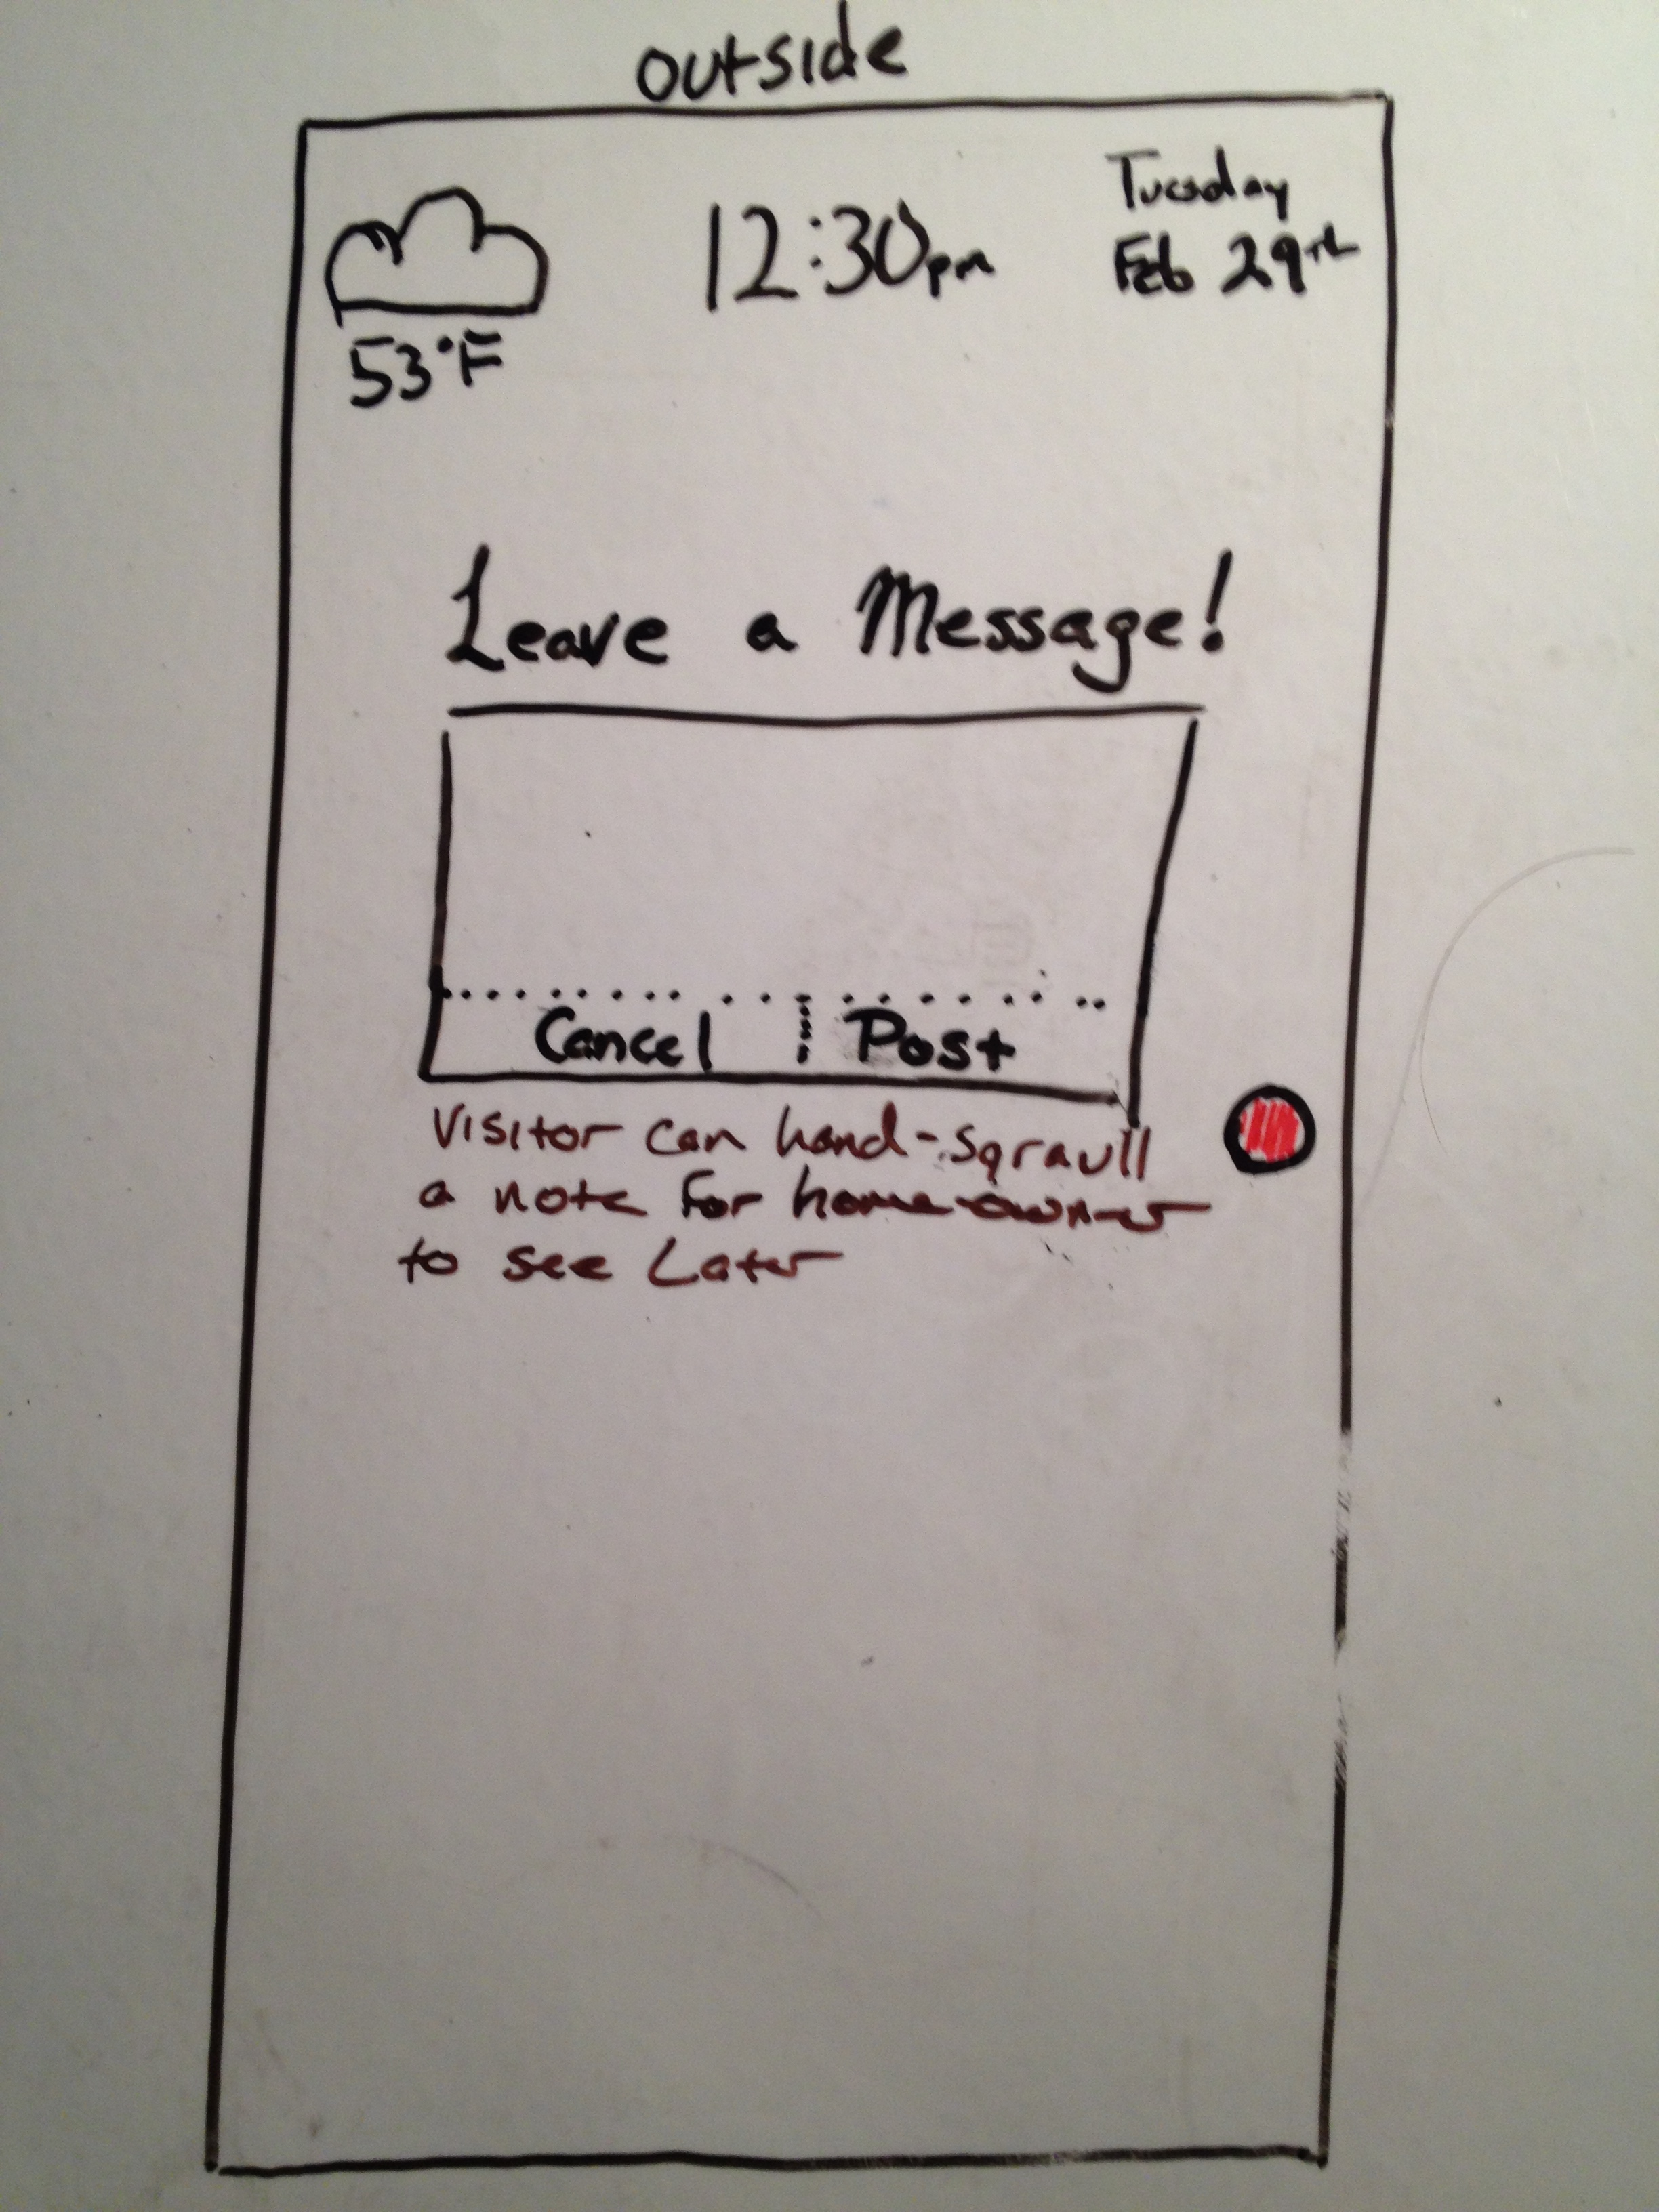 outside
12:30pm
Tuesday
Feb 29th
53°F
Leave a Message!
Cancel Post
Visitor can hand-sqraull
a note for home-owner
to see Later